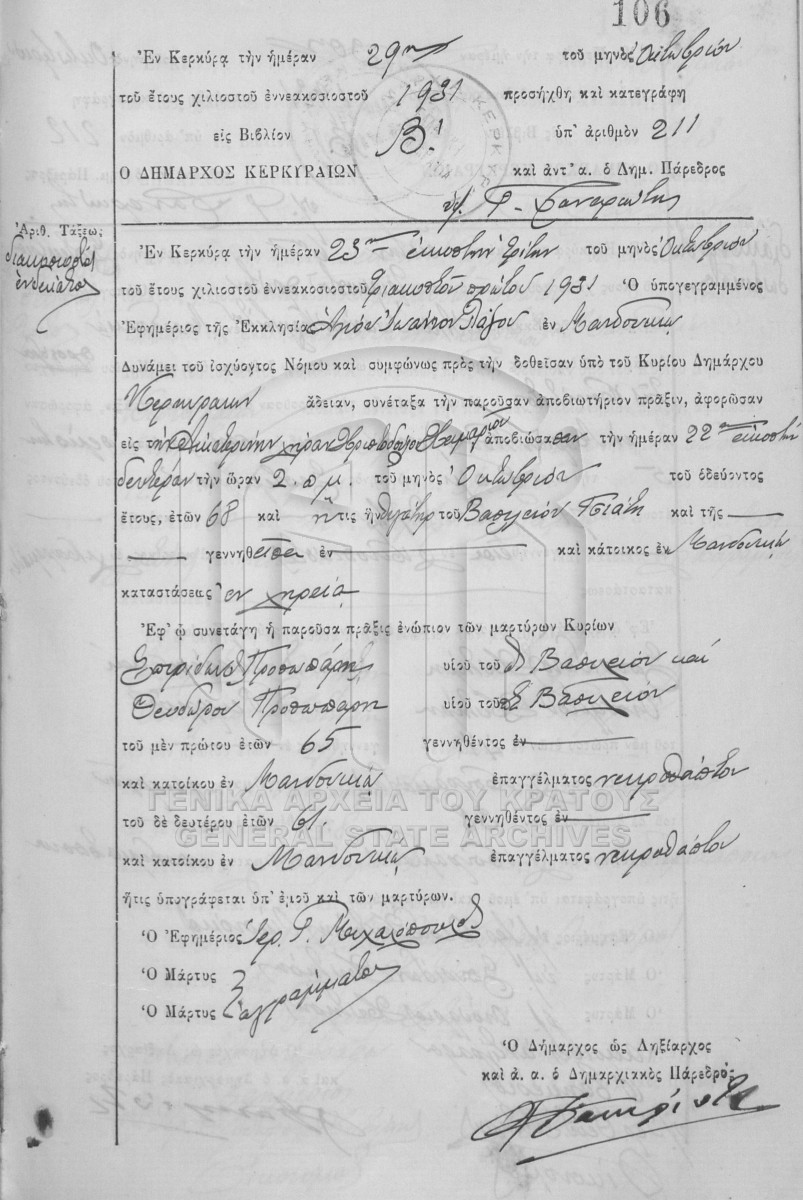 106
Ἐν Κερκύρᾳ τὴν ἡμέραν 29ην τοῦ μηνὸς Ὀκτωβρίου
τοῦ ἔτους χιλιοστοῦ ἐννεακοσιοστοῦ 1931 προσήχθη καὶ κατεγράφη
εἰς Βιβλίον Β! ὑπ' ἀριθμὸν 211
Ο ΔΗΜΑΡΧΟΣ ΚΕΡΚΥΡΑΙΩΝ καὶ ἀντ' α. ὁ Δημ. Πάρεδρος
Ἀριθ. Τάξεως
διακοσιοστός
ἑνδέκατος
Ἐν Κερκύρᾳ τὴν ἡμέραν 23ην εἰκοστὴν τρίτην τοῦ μηνὸς Ὀκτωβρίου
τοῦ ἔτους χιλιοστοῦ ἐννεακοσιοστοῦ τριακοστοῦ πρώτου 1931 Ὁ ὑπογεγραμμένος
Ἐφημέριος τῆς Ἐκκλησίας Ἁγίου Ἰωάννου Λάζου ἐν Μανδουκίῳ
Δυνάμει τοῦ ἰσχύοντος Νόμου καὶ συμφώνως πρὸς τὴν δοθεῖσαν ὑπὸ τοῦ Κυρίου Δημάρχου
Κερκυραίων ἄδειαν, συνέταξα τὴν παροῦσαν ἀποβιωτήριον πρᾶξιν, ἀφορῶσαν
εἰς τὴν Αἰκατερίνην χήραν Χριστοδούλου ἀποβιώσασαν τὴν ἡμέραν 22αν εἰκοστὴν
δευτέραν τὴν ὥραν 2. π.μ. τοῦ μηνὸς Ὀκτωβρίου τοῦ ὁδεύοντος
ἔτους, ἐτῶν 68 καὶ ἥτις ἦν θυγάτηρ τοῦ Βασιλείου Τσιάτη καὶ τῆς —
— γεννηθεῖσα ἐν — καὶ κάτοικος ἐν Μανδουκίῳ
καταστάσεως ἐν χηρείᾳ
Ἐφ' ᾧ συνετάγη ἡ παροῦσα πρᾶξις ἐνώπιον τῶν μαρτύρων Κυρίων
Σπυρίδωνος Προσωπάρη υἱοῦ τοῦ Βασιλείου καὶ
Θεοδώρου Προσωπάρη υἱοῦ τοῦ Βασιλείου
τοῦ μὲν πρώτου ἐτῶν 65 γεννηθέντος ἐν —
καὶ κατοίκου ἐν Μανδουκίῳ ἐπαγγέλματος νεκροθάπτου
ΓΕΝΙΚΑ ΑΡΧΕΙΑ ΤΟΥ ΚΡΑΤΟΥΣ
τοῦ δὲ δευτέρου ἐτῶν 61. γεννηθέντος ἐν —
GENERAL STATE ARCHIVES
καὶ κατοίκου ἐν Μανδουκίῳ ἐπαγγέλματος νεκροθάπτου
ἥτις ὑπογράφεται ὑπ' ἐμοῦ καὶ τῶν μαρτύρων.
Ὁ Ἐφημέριος Ἱερ. Γ. Μιχαλόπουλος
Ὁ Μάρτυς
Ὁ Μάρτυς ἀγράμματοι
Ὁ Δήμαρχος ὡς Ληξίαρχος
καὶ ἀ. α. ὁ Δημαρχιακὸς Πάρεδρος